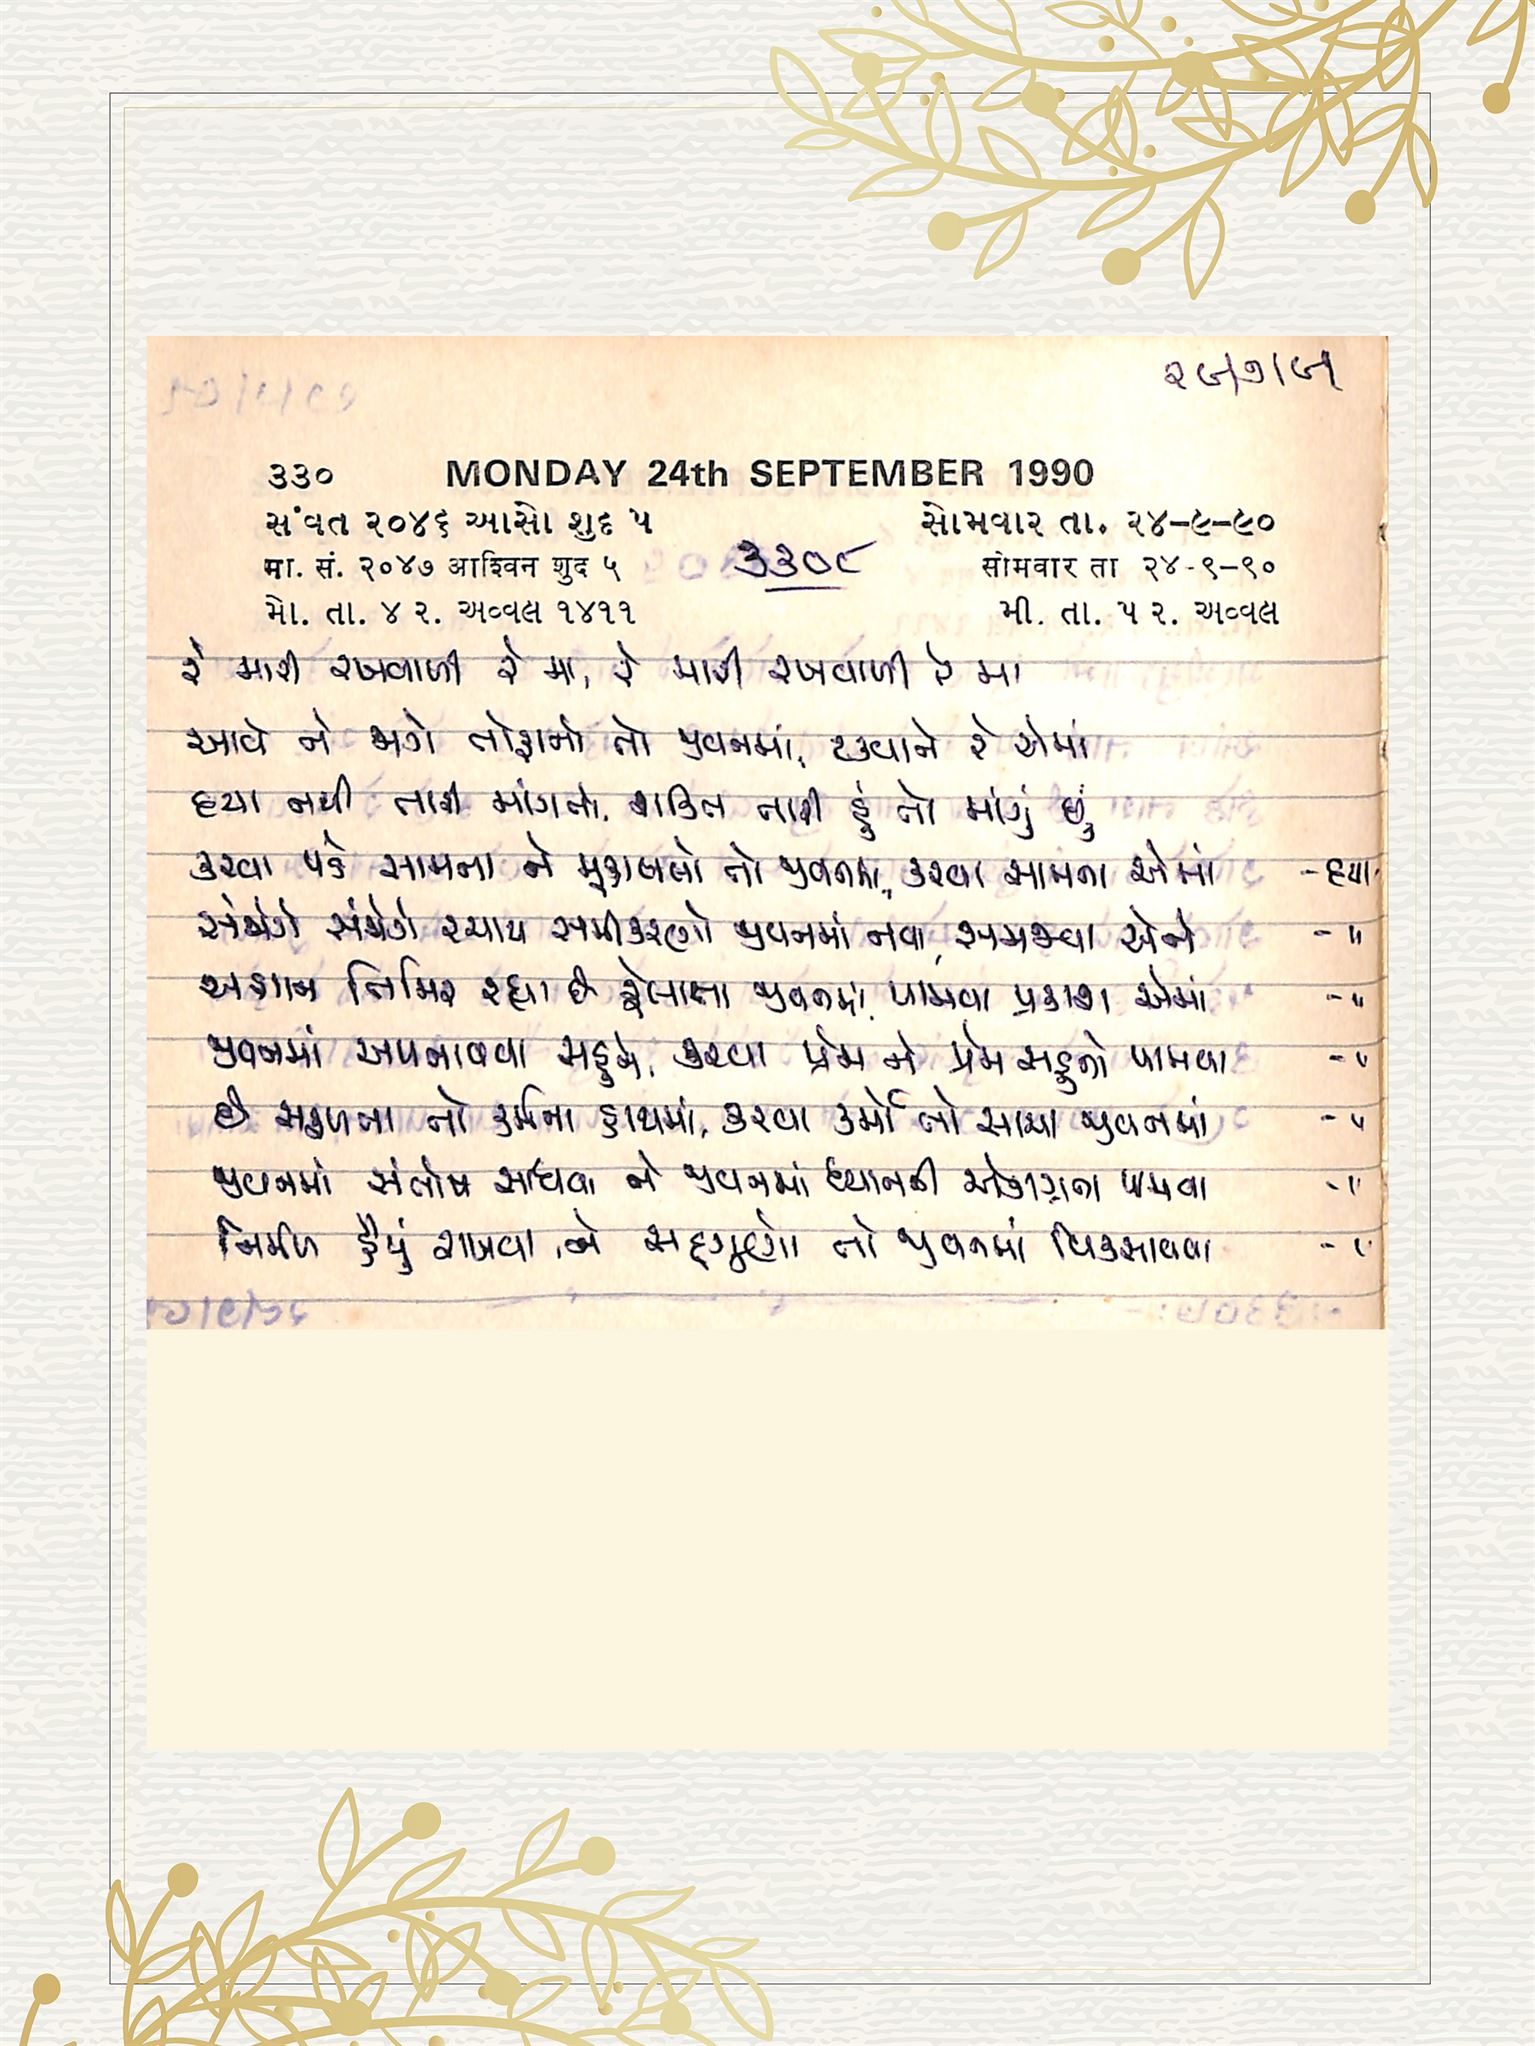 ૨૯/૭/૯૧
૩૩૦ MONDAY 24th SEPTEMBER 1990
સંવત ૨૦૪૬ આસો શુદ ૫ સોમવાર તા. ૨૪-૯-૯૦
मा. सं. २०४७ आश्विन शुद ५ सोमवार ता २४-९-९०
મો. તા. ૪ ર. અવ્વલ ૧૪૧૧ મી. તા. ૫ ર. અવ્વલ
૩૩૦૮
રે મારી રખવાળી રે મા, રે મારી રખવાળી રે મા
આવે ને જાગે તોફાનો તો જીવનમાં, ટકવાને રે એમાં
દયા નથી તારી માંગતો, શક્તિ તારી હું તો માંગું છું
કરવા પડે સામના ને મુકાબલો તો જીવનમાં, કરવા સામના એમાં - દયા
સંજોગે સંજોગે રચાય સમીકરણો જીવનમાં નવા, સમજવા એને - "
અજ્ઞાન તિમિર રહ્યા છે ફેલાતા જીવનમાં, પામવા પ્રકાશ એમાં - "
જીવનમાં અપનાવવા સહુને, કરવા પ્રેમ ને પ્રેમ સહુનો પામવા - "
છે સફળતા તો કર્મના હાથમાં, કરવા કર્મો તો સાચા જીવનમાં - "
જીવનમાં સંતોષ સાધવા ને જીવનમાં ધ્યાનની એકાગ્રતા પામવા - "
નિર્મળ હૈયું રાખવા, ને સદ્દગુણો તો જીવનમાં વિકસાવવા - "